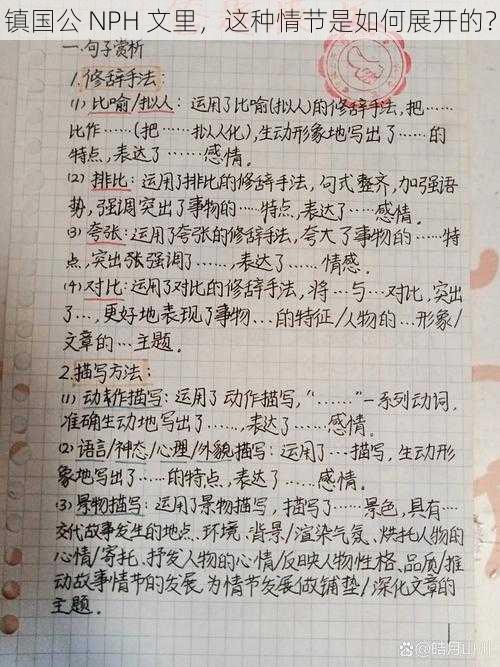 镇国公 NPH 文里，这种情节是如何展开的？
一.句子赏析
1.修辞手法：
(1)比喻/拟人：运用了比喻(拟人)的修辞手法，把……
比作……(把……拟人化)，生动形象地写出了……的
特点，表达了……感情。
(2)排比：运用了排比的修辞手法，句式整齐，加强语
势，强调突出了事物的……特点，表达了……感情。
(3)夸张：运用了夸张的修辞手法，夸大了事物的……特
点，突出张强调了……，表达了……情感。
(4)对比：运用了对比的修辞手法，将…与…对比，突出
了…，更好地表现了事物…的特征/人物的…形象/
文章的…主题。
2.描写方法：
(1)动作描写：运用了动作描写，“……”一系列动词，
准确生动地写出了……，表达了……感情。
(2)语言/神态/心理/外貌描写：运用了…描写，生动形
象地写出了……的特点，表达了……感情。
(3)景物描写：运用了景物描写，描写了……景色，具有…
交代故事发生的地点、环境、背景/渲染气氛、烘托人物的
心情/寄托、抒发人物的心情/反映人物性格、品质/推
动故事情节的发展，为情节发展做铺垫/深化文章的
主题。
皓月山川